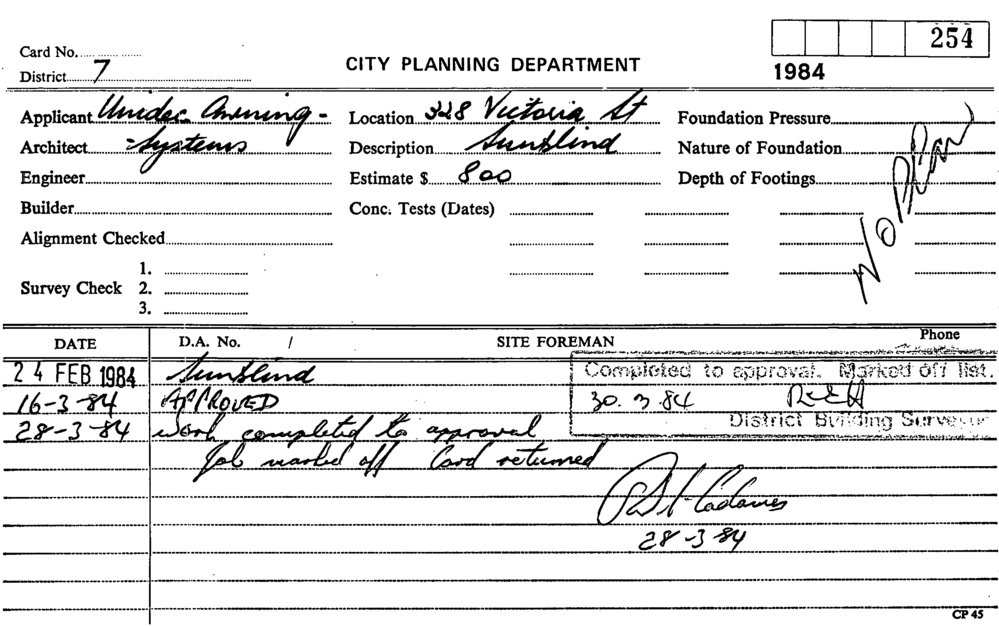 254
Card No.
District 7
CITY PLANNING DEPARTMENT
1984
Applicant Unidec Awning -
Location 328 Victoria St
Foundation Pressure
Architect =Systems
Description Sunblind
Nature of Foundation
Engineer
Estimate $ 800
Depth of Footings
No Plan
Builder
Conc. Tests (Dates)
Alignment Checked
1.
Survey Check 2.
3.
DATE D.A. No. / SITE FOREMAN Phone
24 FEB 1984 Sunblind
Completed to approval. Marked off list.
16-3-84 APPROVED
30.3.84
28-3-84 Work completed to approval
District Building Surveyor
Job marked off Card returned
28-3-84
CP 45